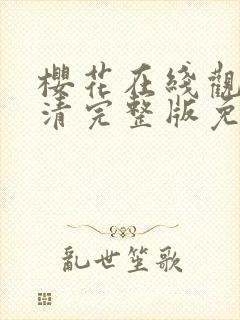 櫻花在綫觀
清完整版免
亂世笙歌